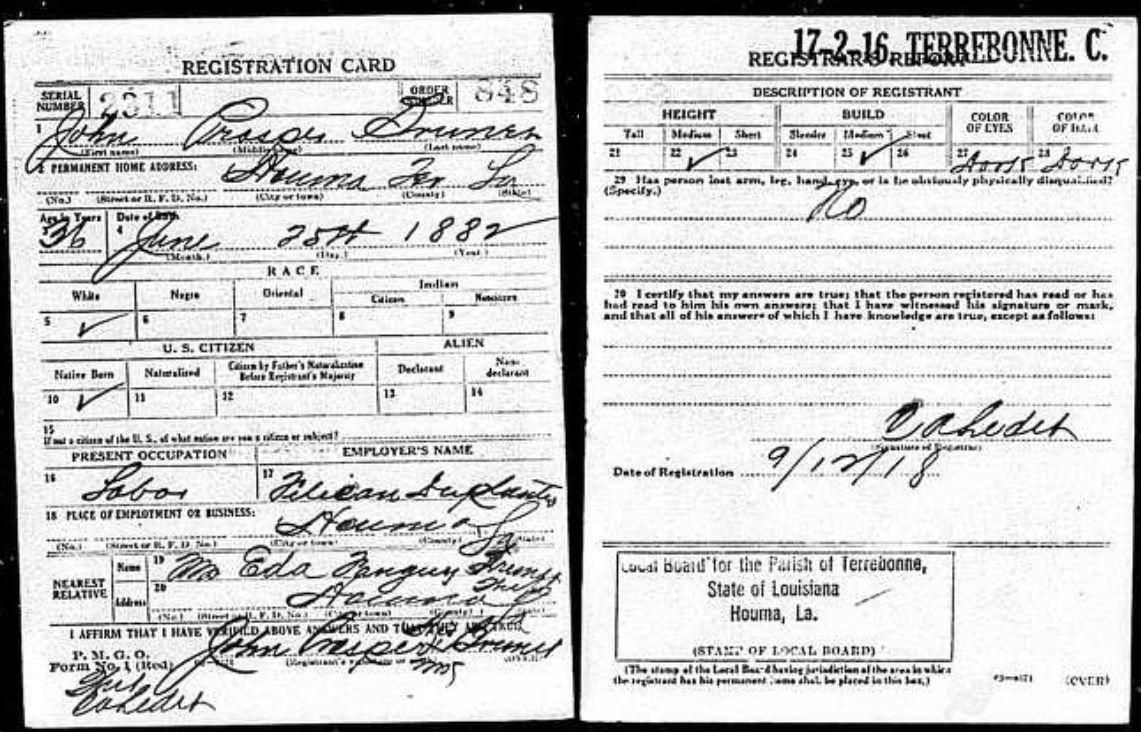 REGISTRATION CARD
SERIAL NUMBER 2311 ORDER NUMBER 848
1 John Prosper Bruner
(First name) (Middle name) (Last name)
2 PERMANENT HOME ADDRESS: Houma Ter La
(No.) (Street or R. F. D. No.) (City or town) (County) (State)
Age in Years Date of Birth
3 36 4 June 25th 1882
(Month.) (Day.) (Year.)
RACE
White Negro Oriental Indian
Citizen Noncitizen
5 ✓ 6 7 8 9
U. S. CITIZEN ALIEN
Native Born Naturalized Citizen by Father's Naturalization Before Registrant's Majority Declarant Non-declarant
10 ✓ 11 12 13 14
15
If not a citizen of the U. S., of what nation are you a citizen or subject?
PRESENT OCCUPATION EMPLOYER'S NAME
16 Labor 17 Felican Duplantis
18 PLACE OF EMPLOYMENT OR BUSINESS: Houma La
(No.) (Street or R. F. D. No.) (City or town) (County) (State)
NEAREST RELATIVE
Name 19 Mrs Eda Bruner
Address 20 Houma
(No.) (Street or R. F. D. No.) (City or town) (County) (State)
I AFFIRM THAT I HAVE VERIFIED ABOVE ANSWERS AND THAT THEY ARE TRUE
P. M. G. O.
Form No. 1 (Red) John Prosper Bruner
(Registrant's signature or mark)
17-2-16. TERREBONNE. C.
REGISTRAR'S REPORT
DESCRIPTION OF REGISTRANT
HEIGHT BUILD COLOR OF EYES COLOR OF HAIR
Tall Medium Short Slender Medium Stout
21 22 ✓ 23 24 25 ✓ 26 27 Dark 28 Dark
29 Has person lost arm, leg, hand, eye, or is he obviously physically disqualified?
(Specify.) No
30 I certify that my answers are true; that the person registered has read or has
had read to him his own answers; that I have witnessed his signature or mark,
and that all of his answers of which I have knowledge are true, except as follows:
(Signature of Registrar)
Date of Registration 9/12/18
Local Board for the Parish of Terrebonne,
State of Louisiana
Houma, La.
(STAMP OF LOCAL BOARD)
(The stamp of the Local Board having jurisdiction of the area in which
the registrant has his permanent home shall be placed in this box.)
(OVER)